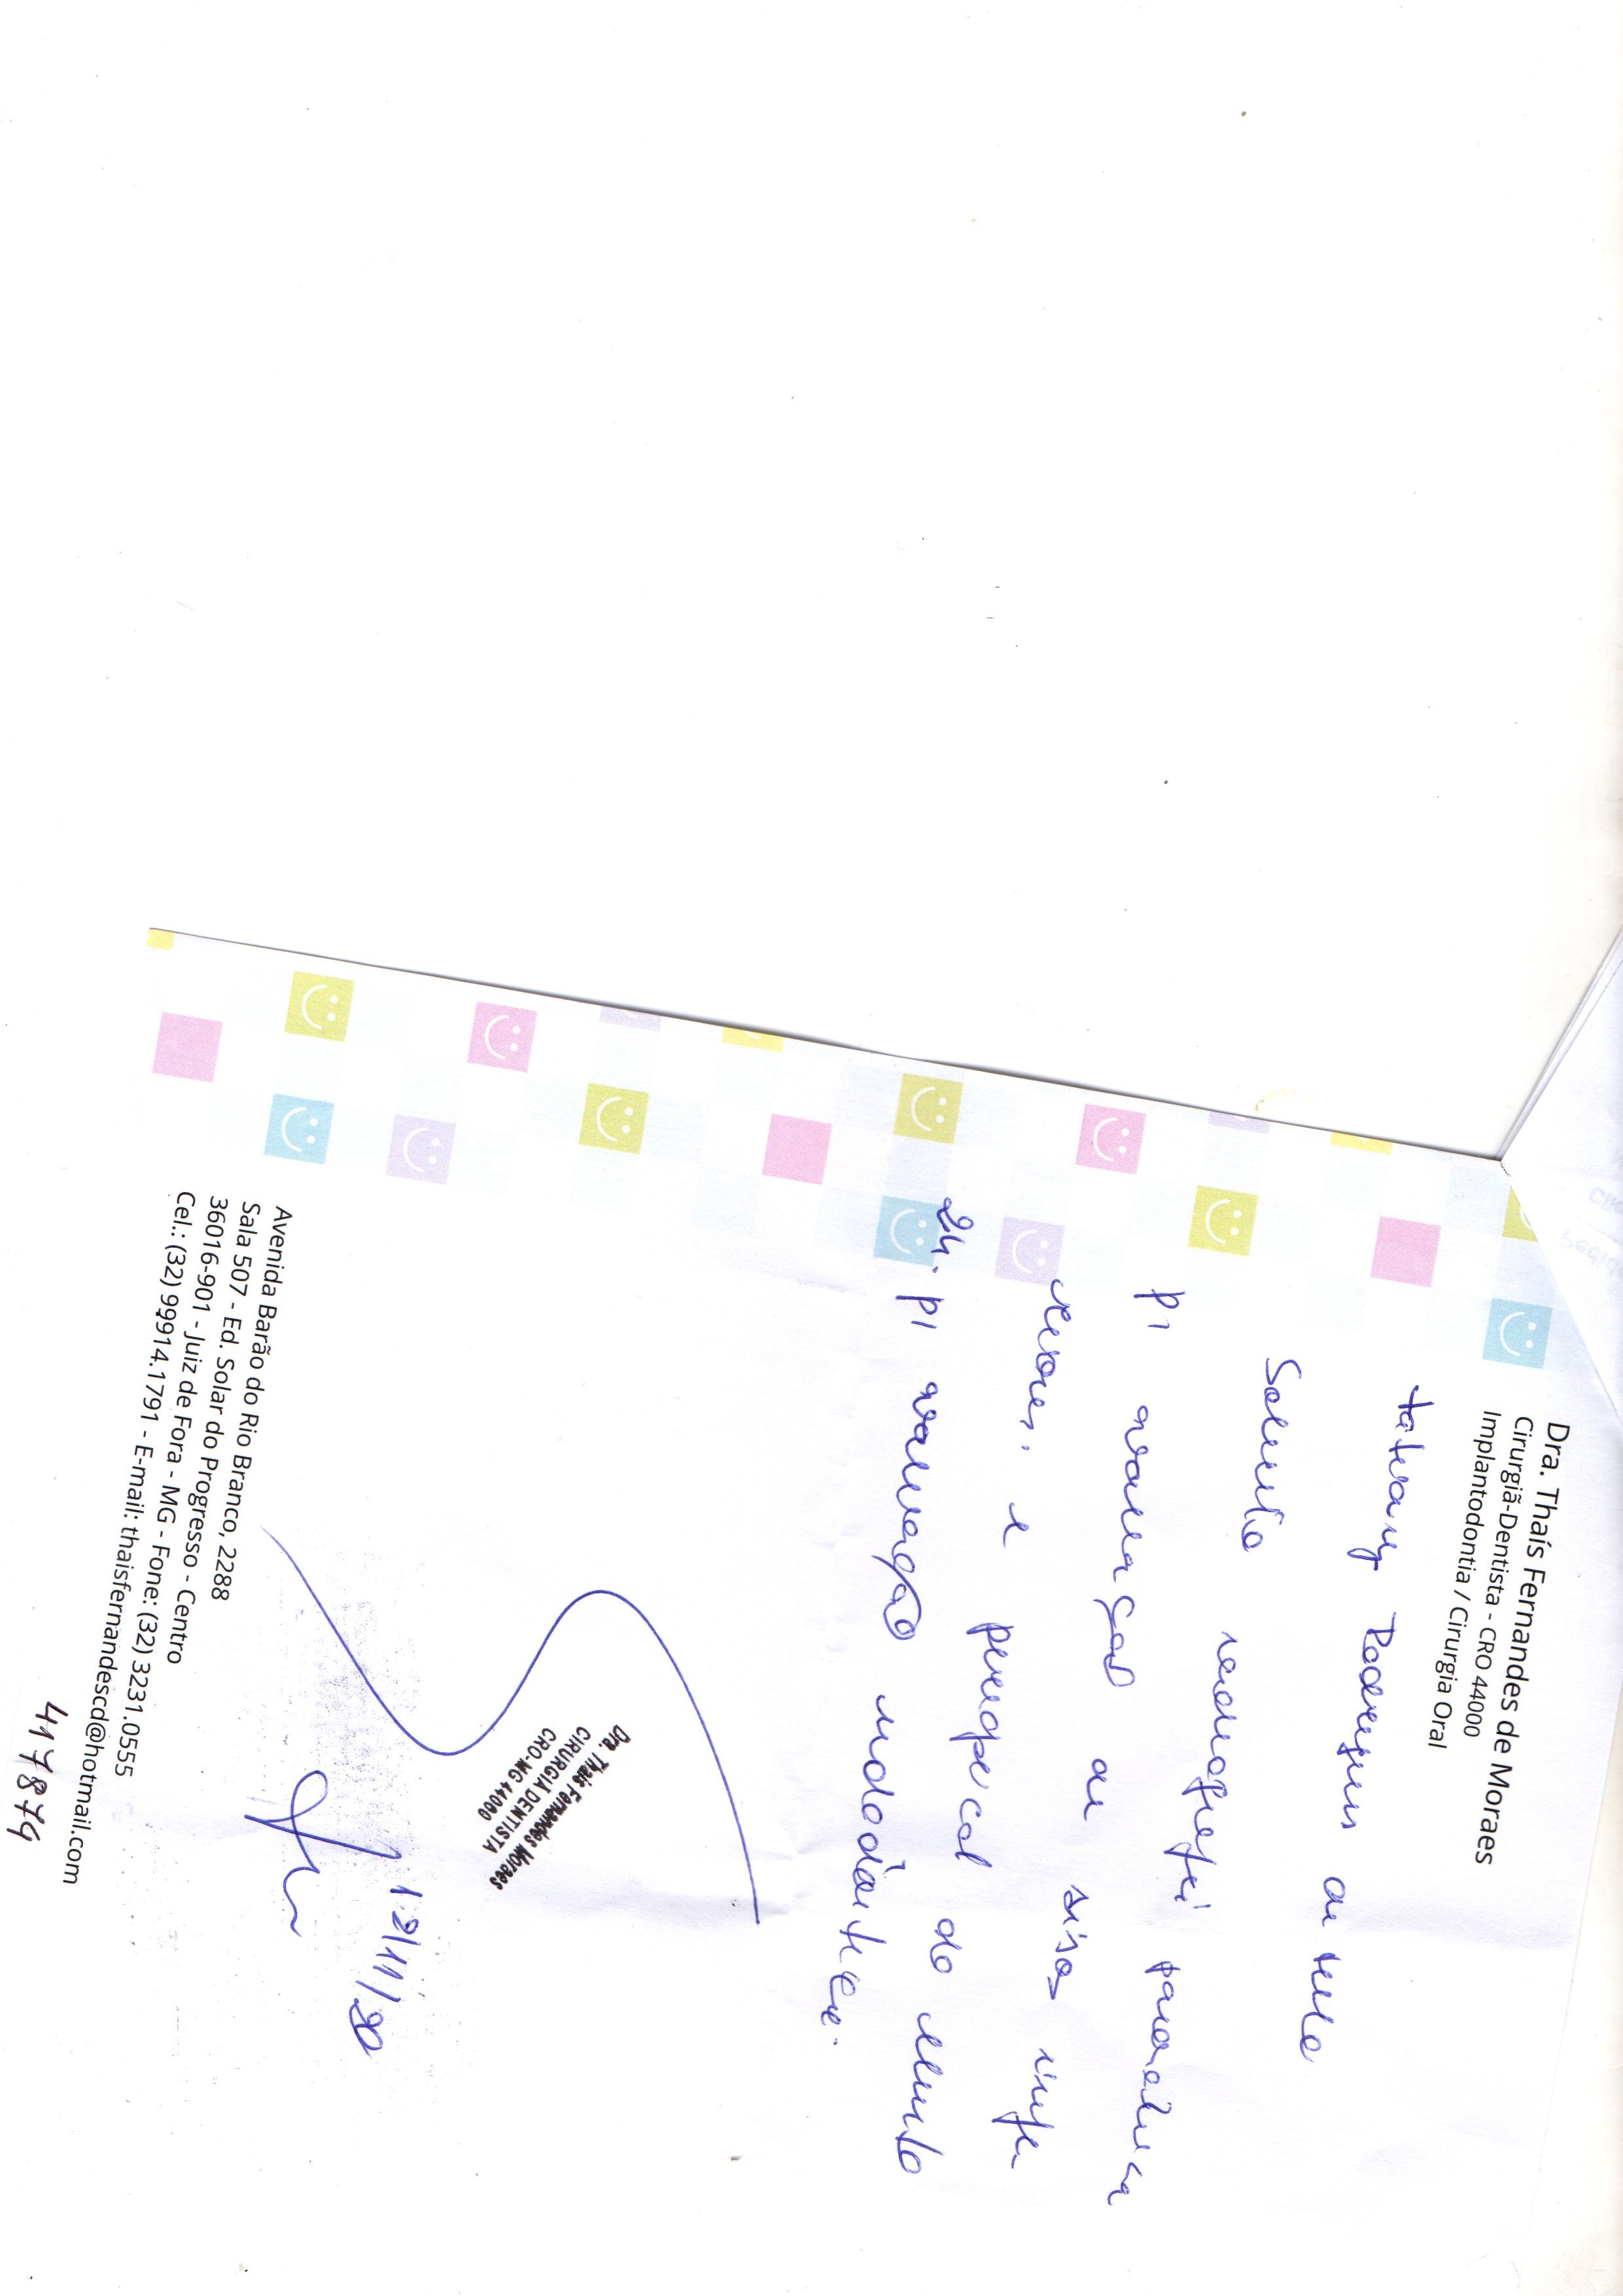 Dra. Thaís Fernandes de Moraes
Cirurgiã-Dentista - CRO 44000
Implantodontia / Cirurgia Oral
Tatiany Rodrigues
Solicito radiografia panorâmica
p/ avaliação de sisos infe-
riores. e periapical do elemento
24. p/ avaliação endodôntica.
Dra. Thaís Fernandes Moraes
CIRURGIÃ DENTISTA
CRO-MG 44000
12/11/20
Avenida Barão do Rio Branco, 2288
Sala 507 - Ed. Solar do Progresso - Centro
36016-901 - Juiz de Fora - MG - Fone: (32) 3231.0555
Cel.: (32) 99914.1791 - E-mail: thaisfernandescd@hotmail.com
417879